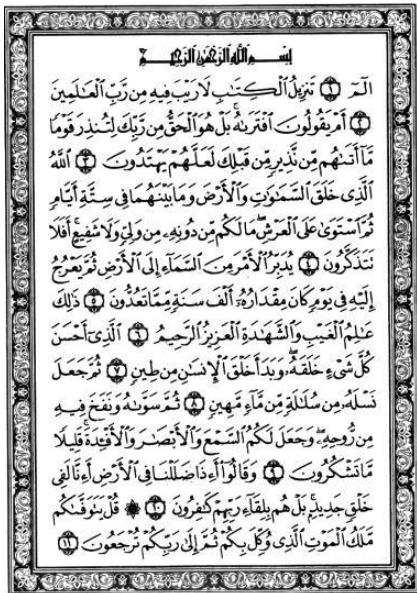 بِسْمِ اللَّهِ الرَّحْمَٰنِ الرَّحِيمِ
الٓمٓ ١ تَنزِيلُ الْكِتَٰبِ لَا رَيْبَ فِيهِ مِن رَّبِّ الْعَٰلَمِينَ
٢ أَمْ يَقُولُونَ افْتَرَىٰهُ ۚ بَلْ هُوَ الْحَقُّ مِن رَّبِّكَ لِتُنذِرَ قَوْمًا
مَّآ أَتَىٰهُم مِّن نَّذِيرٍ مِّن قَبْلِكَ لَعَلَّهُمْ يَهْتَدُونَ ٣ اللَّهُ
الَّذِى خَلَقَ السَّمَٰوَٰتِ وَالْأَرْضَ وَمَا بَيْنَهُمَا فِى سِتَّةِ أَيَّامٍ
ثُمَّ اسْتَوَىٰ عَلَى الْعَرْشِ ۖ مَا لَكُم مِّن دُونِهِۦ مِن وَلِىٍّ وَلَا شَفِيعٍ ۚ أَفَلَا
تَتَذَكَّرُونَ ٤ يُدَبِّرُ الْأَمْرَ مِنَ السَّمَآءِ إِلَى الْأَرْضِ ثُمَّ يَعْرُجُ
إِلَيْهِ فِى يَوْمٍ كَانَ مِقْدَارُهُۥٓ أَلْفَ سَنَةٍ مِّمَّا تَعُدُّونَ ٥ ذَٰلِكَ
عَٰلِمُ الْغَيْبِ وَالشَّهَٰدَةِ الْعَزِيزُ الرَّحِيمُ ٦ الَّذِىٓ أَحْسَنَ
كُلَّ شَىْءٍ خَلَقَهُۥ ۖ وَبَدَأَ خَلْقَ الْإِنسَٰنِ مِن طِينٍ ٧ ثُمَّ جَعَلَ
نَسْلَهُۥ مِن سُلَٰلَةٍ مِّن مَّآءٍ مَّهِينٍ ٨ ثُمَّ سَوَّىٰهُ وَنَفَخَ فِيهِ
مِن رُّوحِهِۦ ۖ وَجَعَلَ لَكُمُ السَّمْعَ وَالْأَبْصَٰرَ وَالْأَفْـِٔدَةَ ۚ قَلِيلًا
مَّا تَشْكُرُونَ ٩ وَقَالُوٓا۟ أَءِذَا ضَلَلْنَا فِى الْأَرْضِ أَءِنَّا لَفِى
خَلْقٍ جَدِيدٍۭ ۚ بَلْ هُم بِلِقَآءِ رَبِّهِمْ كَٰفِرُونَ ١٠ ۞ قُلْ يَتَوَفَّىٰكُم
مَّلَكُ الْمَوْتِ الَّذِى وُكِّلَ بِكُمْ ثُمَّ إِلَىٰ رَبِّكُمْ تُرْجَعُونَ ١١